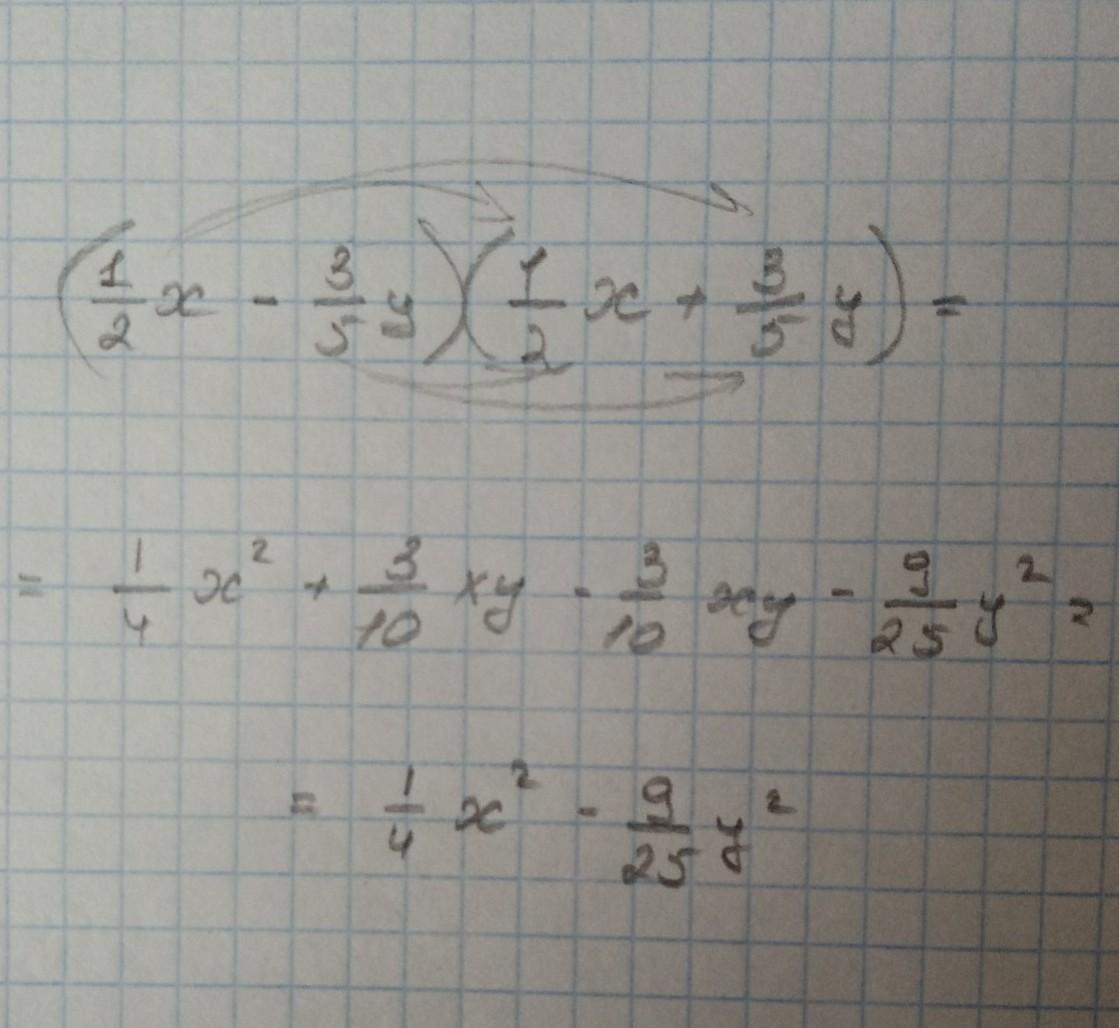 (1/2 x - 3/5 y)(1/2 x + 3/5 y) =
= 1/4 x² + 3/10 xy - 3/10 xy - 9/25 y² =
= 1/4 x² - 9/25 y²